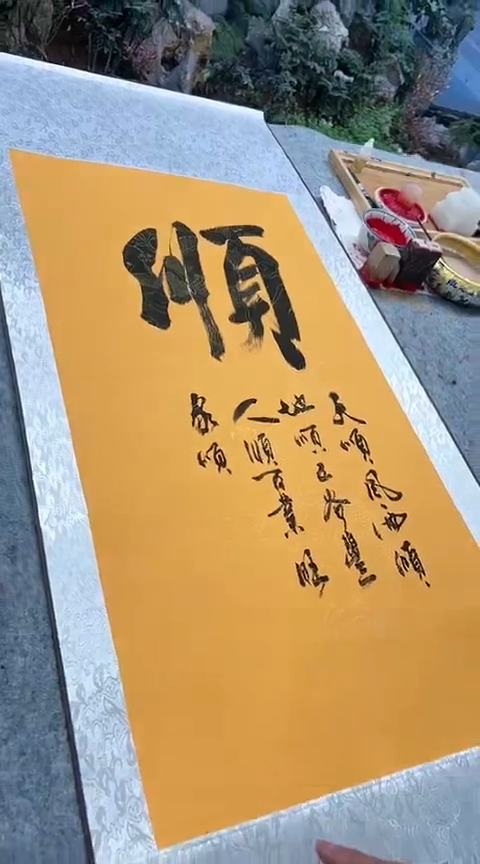 順
天順風雨順
地順五谷豐
人順百業旺
家順